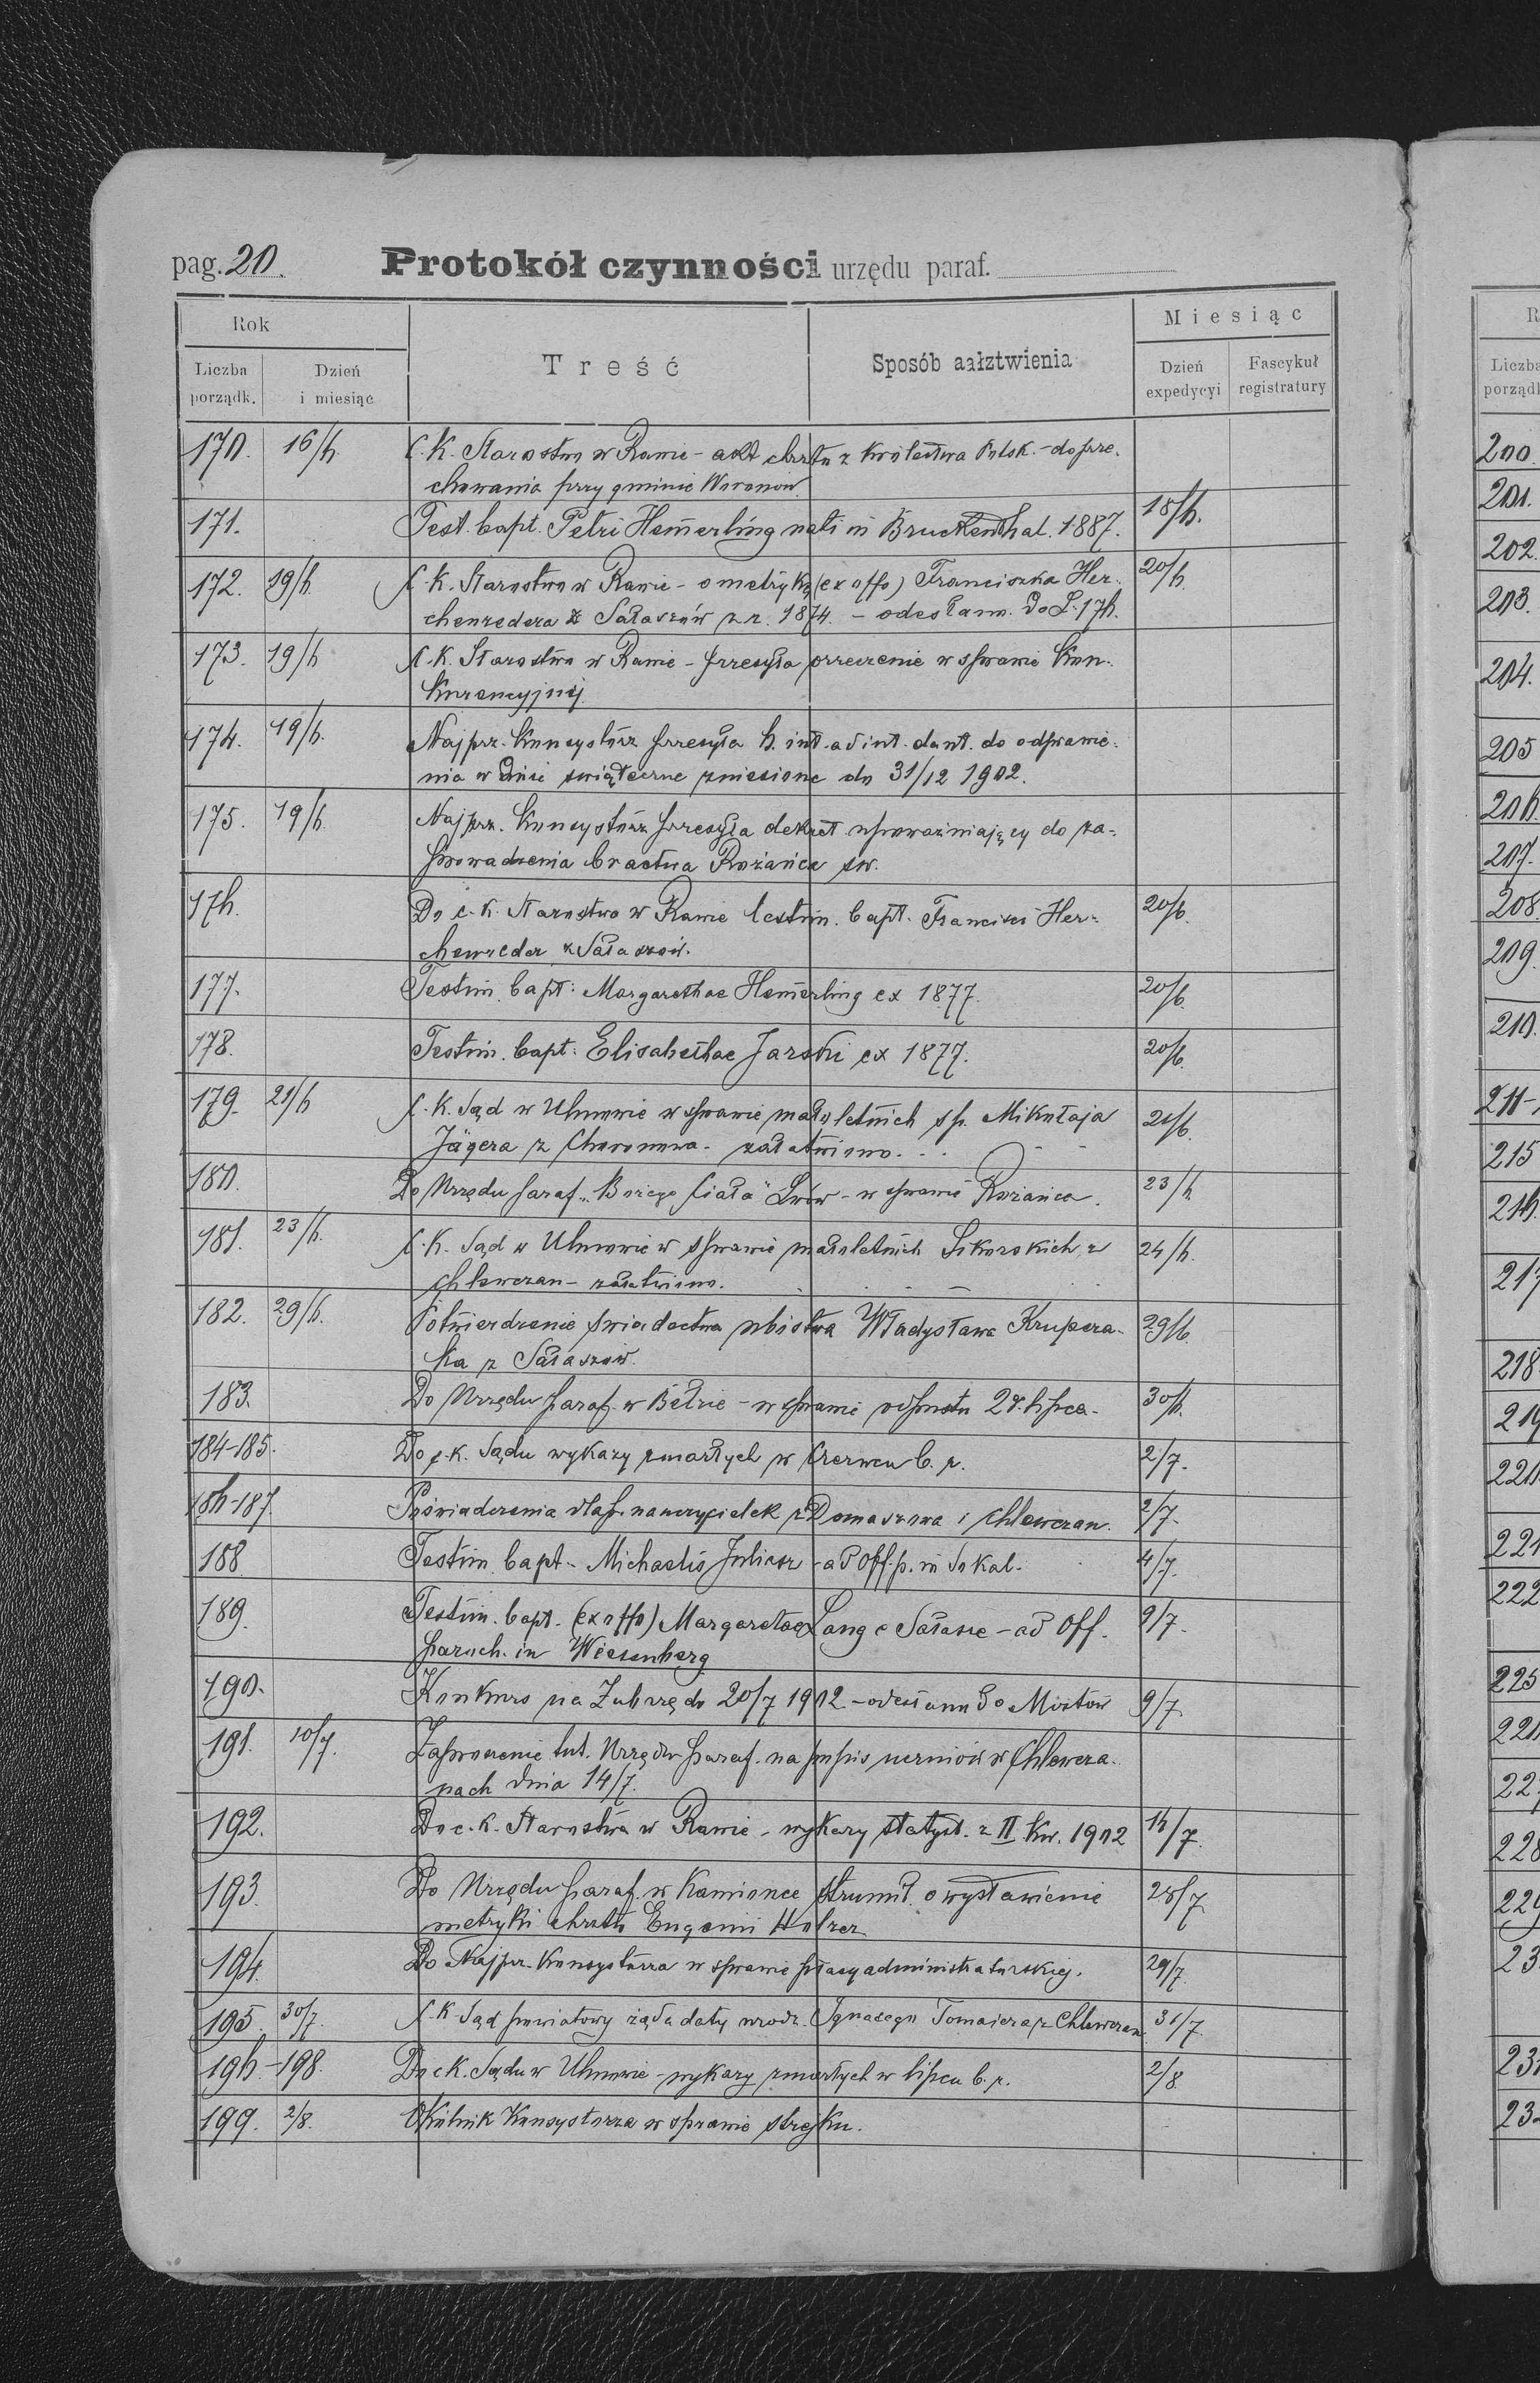 pag. 20. Protokół czynności urzędu paraf.
Rok Treść Sposób aałztwienia Miesiąc
Liczba porządk. Dzień i miesiąc Dzień expedycyi Fascykuł registratury
170. 16/6. C. K. Starostwo w Rawie - akt chrztu z Królestwa Polsk. - do prze-
chowania przy gminie Woronow.
171. Test. bapt. Petri Hem̄erling nati in Bruckenthal. 1887. 18/6.
172. 19/6. C. K. Starostwo w Rawie - o metrykę (ex offo) Franciszka Her-
chenredera z Sałaszów z r. 1874. - odesłano. do L. 176. 20/6.
173. 19/6 C. K. Starostwo w Rawie - przesyła orzeczenie w sprawie kon-
kurencyjnej
174. 19/6. Najprz. Konsystórz przesyła 6. int. ad int. dant. do odprawie-
nia w dnie świąteczne zniesione do 31/12 1902.
175. 19/6. Najprz. Konsystórz przesyła dekret upoważniający do za-
prowadzenia bractwa Różańca św.
176. Do c. k. Starostwo w Rawie testim. bapt. Francisci Her-
chenreder z Sałaszów. 20/6.
177. Testim. bapt: Margarethae Hem̄erling ex 1877. 20/6.
178. Testim. bapt: Elisabethae Jarski ex 1877. 20/6.
179. 21/6 C. K. Sąd w Uhnowie w sprawie małoletnich śp. Mikołaja
Jägera z Choronowa - załatwiono. 21/6.
180. Do Urzędu paraf. „Bożego Ciała" Lwów - w sprawie Różańca. 23/6
181. 23/6. C. K. Sąd w Uhnowie w sprawie małoletnich Sikorskich z
Chlewczan - załatwiono. 24/6.
182. 29/6. Potwierdzenie świadectwa ubóstwa Władysława Krupcza-
ka z Sałaszów. 29/6.
183. Do Urzędu paraf. w Bełzie - w sprawie odpustu 2go lipca. 30/6.
184-185. Do c. k. Sądu wykazy zmarłych w Czerwcu b. r. 2/7.
186-187. Poświadczenia dla p. nauczycielek z Domaszowa i Chlewczan. 2/7.
188 Testim. bapt. - Michaelis Juliasz - ad Off. p. in Sokal. 4/7.
189. Testim. bapt. (ex offo) Margaretae Lang e Sałasze - ad Off.
paroch. in Wiesenberg 9/7.
190. Konkurs na Zubrzę do 20/7 1902 - odesłano do Mostów 9/7.
191. 10/7. Zaproszenie tut. Urzędu paraf. na popis uczniów w Chlewcza-
nach dnia 14/7.
192. Do c. k. Starostwa w Rawie - wykazy statyst. z II kw. 1902 16/7.
193. Do Urzędu paraf. w Kamionce strumił. o wystawienie
metryki chrztu Eugenii Holzer 28/7.
194. Do Najprz. Konsystorza w sprawie płacy administratorskiej. 29/7.
195. 30/7. C. K. Sąd powiatowy żąda daty urodz. Ignacego Tomajera z Chlewczan 31/7.
196-198. Do c k. Sądu w Uhnowie - wykazy zmarłych w lipcu b. r. 2/8.
199. 2/8. Okólnik Konsystorza w sprawie strejku.
R
Liczba
porządk
200.
201.
202.
203.
204.
205
206.
207.
208.
209.
210.
211-
215
216.
217
218
219
220
221
222
225
22
228
229
23